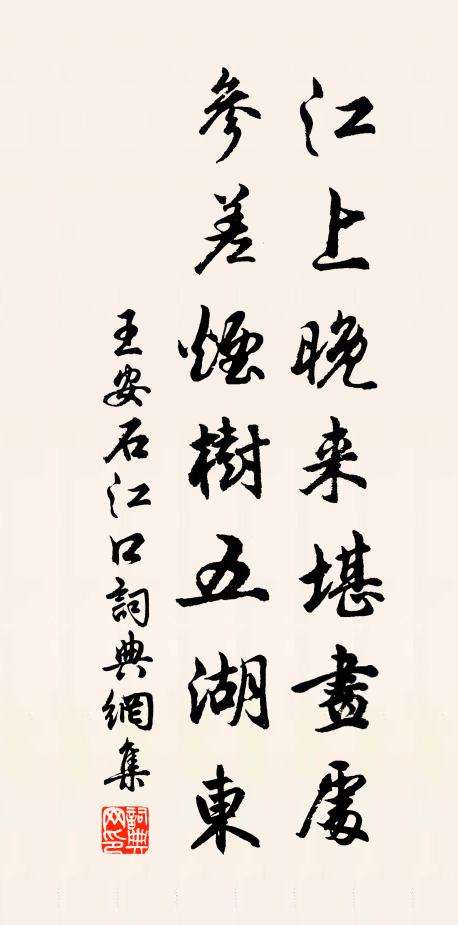 江上晚来堪畫處
參差煙樹五湖東
王安石江口詞典網集
詞典網印